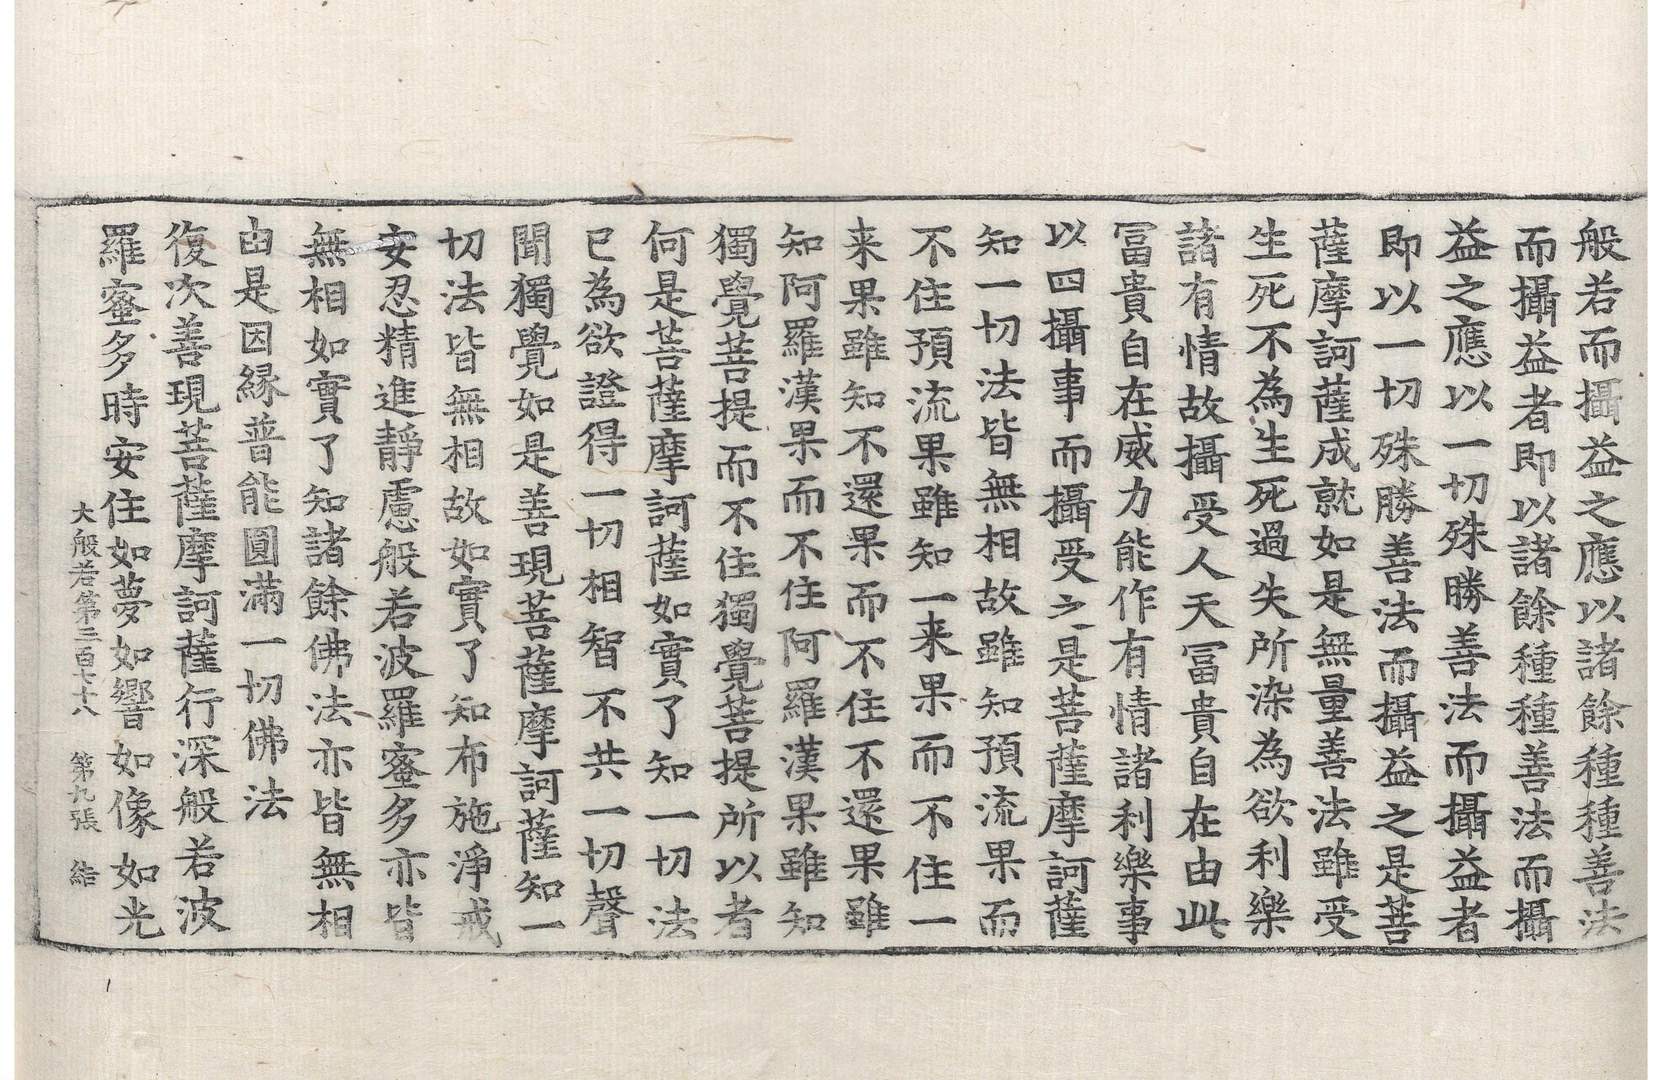 般若而攝益之應以諸餘種種善法
而攝益者即以諸餘種種善法而攝
益之應以一切殊勝善法而攝益者
即以一切殊勝善法而攝益之是菩
薩摩訶薩成就如是無量善法雖受
生死不為生死過失所染為欲利樂
諸有情故攝受人天冨貴自在由此
冨貴自在威力能作有情諸利樂事
以四攝事而攝受之是菩薩摩訶薩
知一切法皆無相故雖知預流果而
不住預流果雖知一来果而不住一
来果雖知不還果而不住不還果雖
知阿羅漢果而不住阿羅漢果雖知
獨覺菩提而不住獨覺菩提所以者
何是菩薩摩訶薩如實了知一切法
已為欲證得一切相智不共一切聲
聞獨覺如是善現菩薩摩訶薩知一
切法皆無相故如實了知布施淨戒
安忍精進靜慮般若波羅蜜多亦皆
無相如實了知諸餘佛法亦皆無相
由是因緣普能圓滿一切佛法
復次善現菩薩摩訶薩行深般若波
羅蜜多時安住如夢如響如像如光
大般若第三百七十八 第九張 結